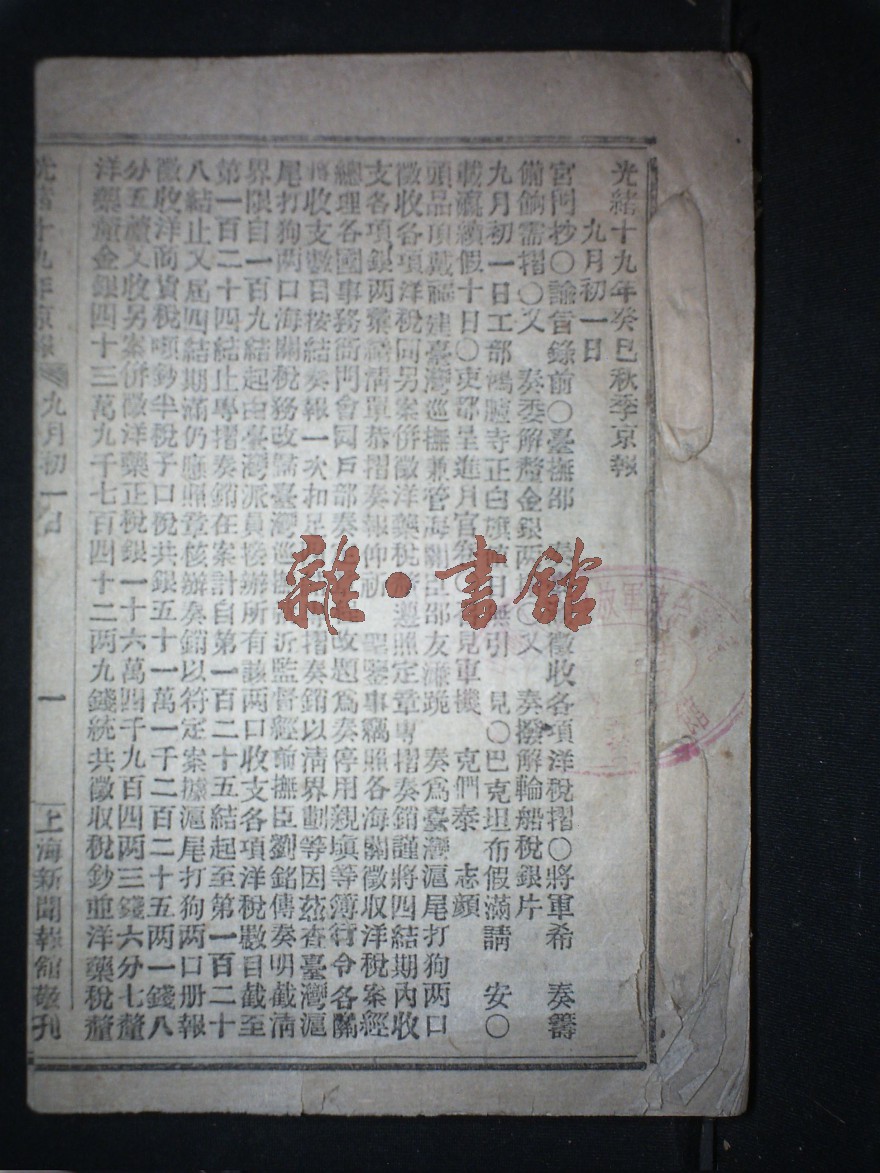 光緒十九年癸巳秋季京報
九月初一日
宮門抄〇諭旨錄前〇臺撫邵 奏 徵收各項洋稅摺〇將軍希 奏籌
備餉需摺〇又 奏委解釐金銀兩 〇又 奏撥解輪船稅銀片
九月初一日工部鴻臚寺正白旗 引 見〇巴克坦布假滿請 安〇
載瀛續假十日〇吏部呈進月官 見軍機 克們泰 志顏
頭品頂戴福建臺灣巡撫兼管海關臣邵友濂跪 奏為臺灣滬尾打狗兩口
徵收各項洋稅同另案併徵洋藥稅 遵照定章專摺奏銷謹將四結期內收
支各項銀兩彙繕清單恭摺奏報仰祈 聖鑒事竊照各海關徵收洋稅案經
總理各國事務衙門會同戶部奏 改題為奏停用親填等簿行令各關
將收支數目按結奏報一次扣足 摺奏銷以清界劃等因茲查臺灣滬
尾打狗兩口海關稅務改歸臺灣巡撫 近監督經前撫臣劉銘傳奏明截清
界限自一百九結起由臺灣派員接辦所有該兩口收支各項洋稅數目截至
第一百二十四結止專摺奏銷在案計自第一百二十五結起至第一百二十
八結止又屆四結期滿仍應照章核辦奏銷以符定案據滬尾打狗兩口冊報
徵收洋商貨稅噸鈔半稅子口稅共銀五十一萬一千二百二十五兩一錢八
分五釐又收另案併徵洋藥正稅銀一十六萬四千九百四兩三錢六分七釐
洋藥釐金銀四十三萬九千七百四十二兩九錢統共徵收稅鈔並洋藥稅釐
光緒十九年京報 九月初一日 一 上海新聞報館敬刊
雜·書館